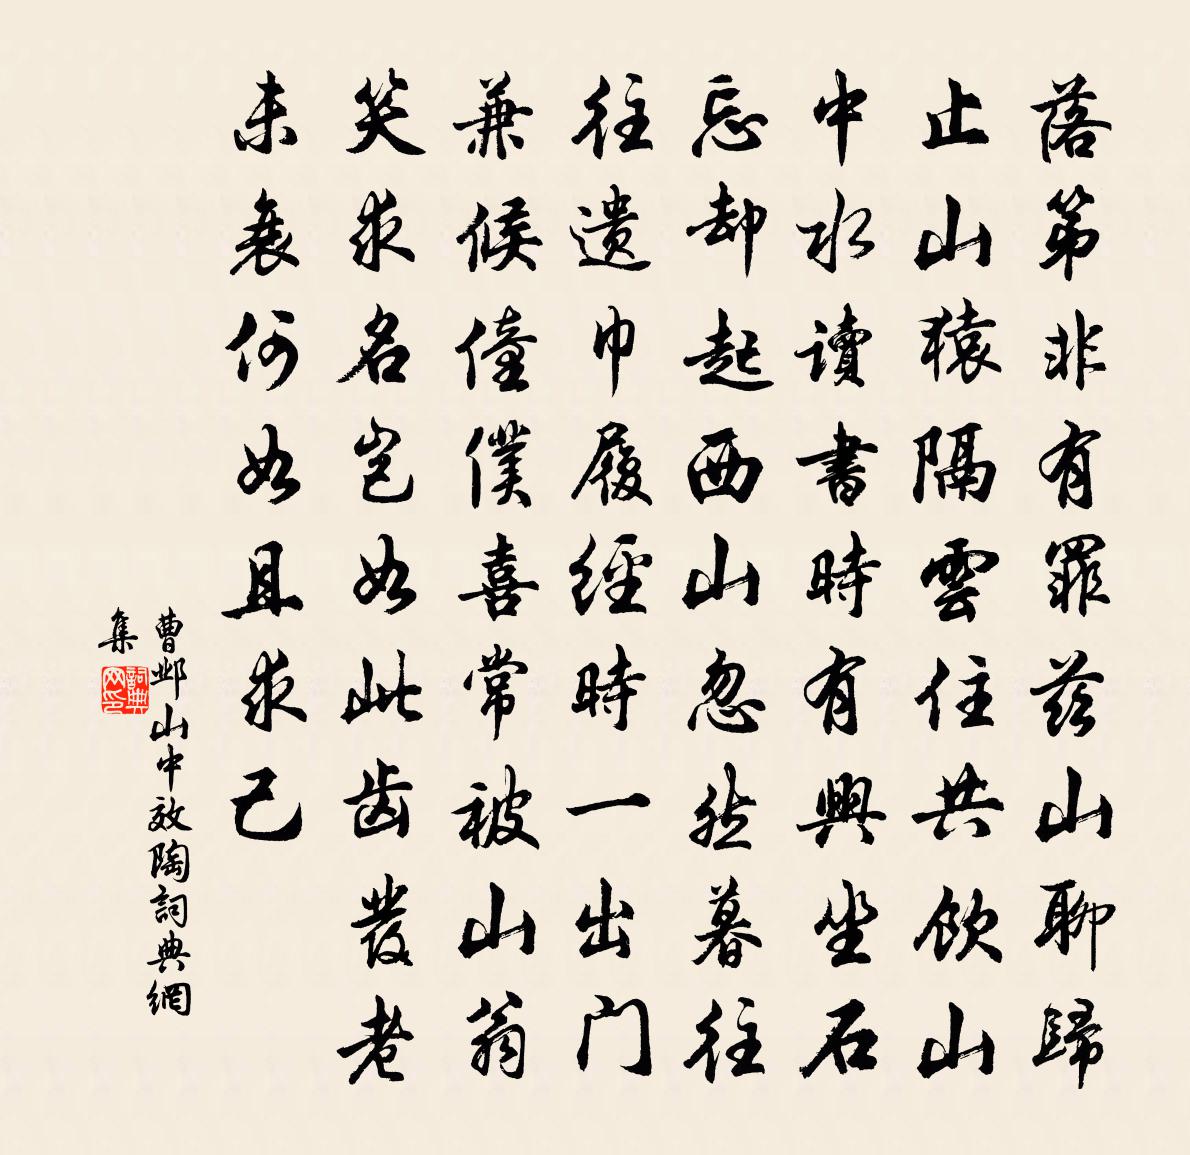 落第非有罪茲山聊歸
止山猿隔雲住共飲山
中水讀書時有興坐石
忘却起西山忽然暮往
往遗巾履經時一出门
兼候僮僕喜常被山翁
笑求名豈如此齿發老
未衰何如且求己
曹邺山中效陶詞典網
集
詞典網印